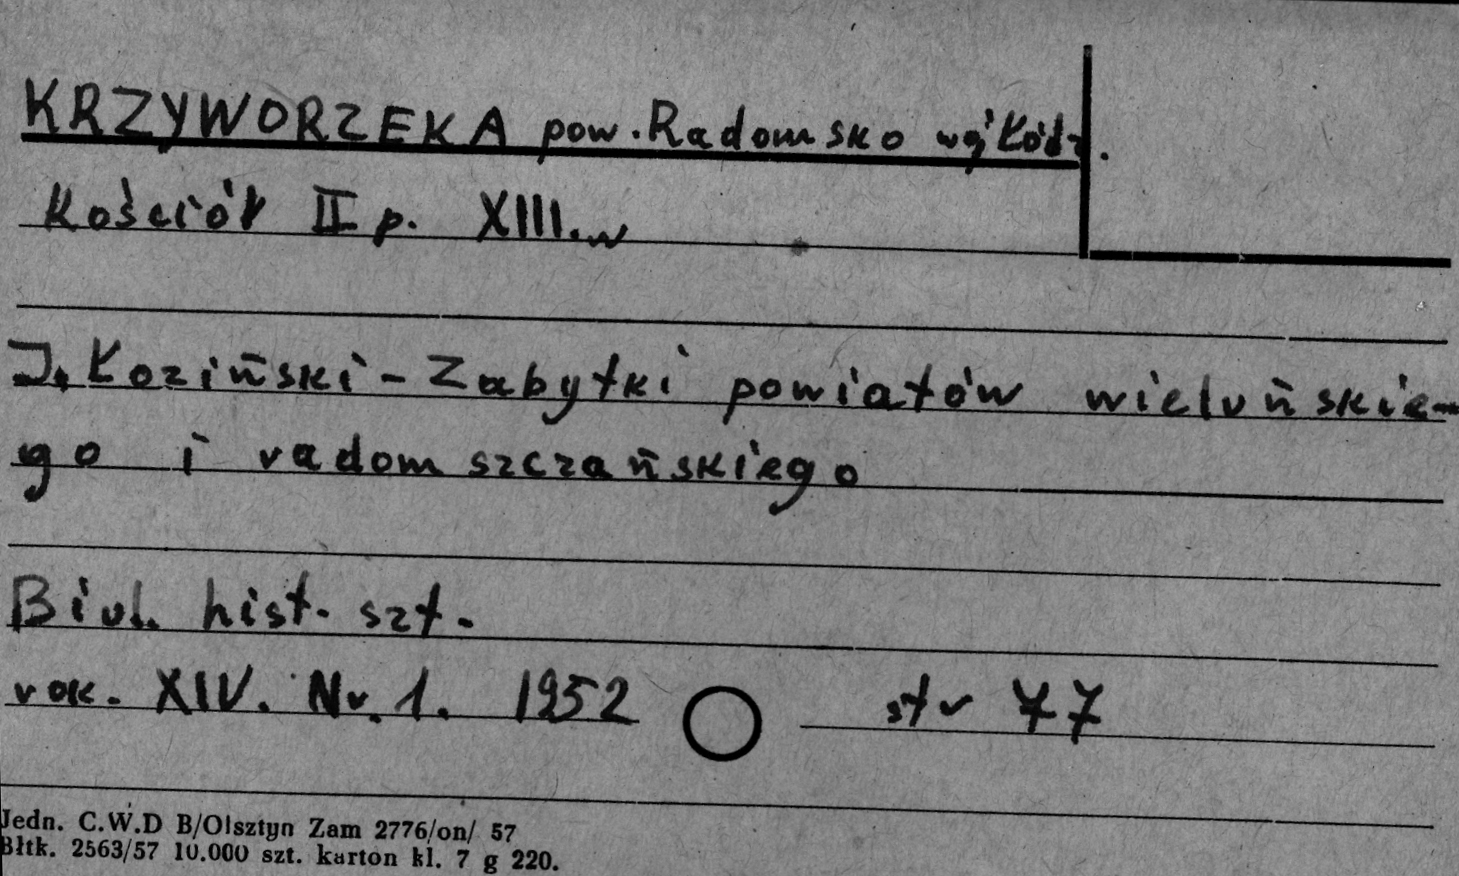 KRZYWORZEKA pow. Radomsko wg' Łódź.
Kościół II p. XIII. w
J. Łoziński - Zabytki powiatów wieluńskie-
go i radomszczańskiego
Biul. hist. szt.
rok. XIV. Nr. 1. 1952 str 77
Jedn. C.W.D B/Olsztyn Zam 2776/on/ 57
Błtk. 2563/57 10.000 szt. karton kl. 7 g 220.